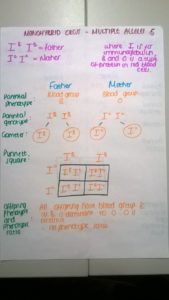 MONOHYBRID CROSS - MULTIPLE ALLELES
I^B I^B = Father
I^O I^O = Mother
where I is for
immunoglobulin
B and O is a type
of protein in red blood
cell
Father Mother
Parental phenotype: Blood group B Blood group O
Parental genotype: I^B I^B I^O I^O
Gametes: I^B I^B I^O I^O
Punnett square:
I^B I^B
I^O I^B I^O I^B I^O
I^O I^B I^O I^B I^O
Offspring
Phenotype
and
Phenotypic
ratio
All offspring have blood group B
as B is dominant to O. O is
recessive
no phenotypic ratio